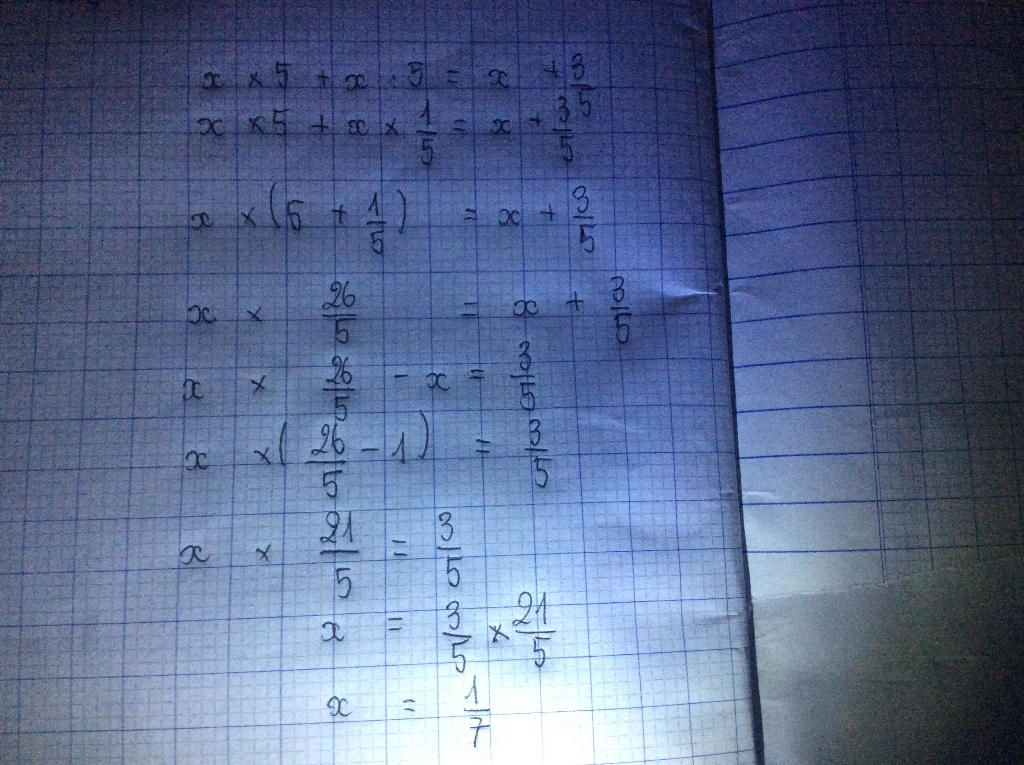 x × 5 + x : 5 = x + 3/5
x × 5 + x × 1/5 = x + 3/5
x × (5 + 1/5) = x + 3/5
x × 26/5 = x + 3/5
x × 26/5 - x = 3/5
x × (26/5 - 1) = 3/5
x × 21/5 = 3/5
x = 3/5 × 21/5
x = 1/7